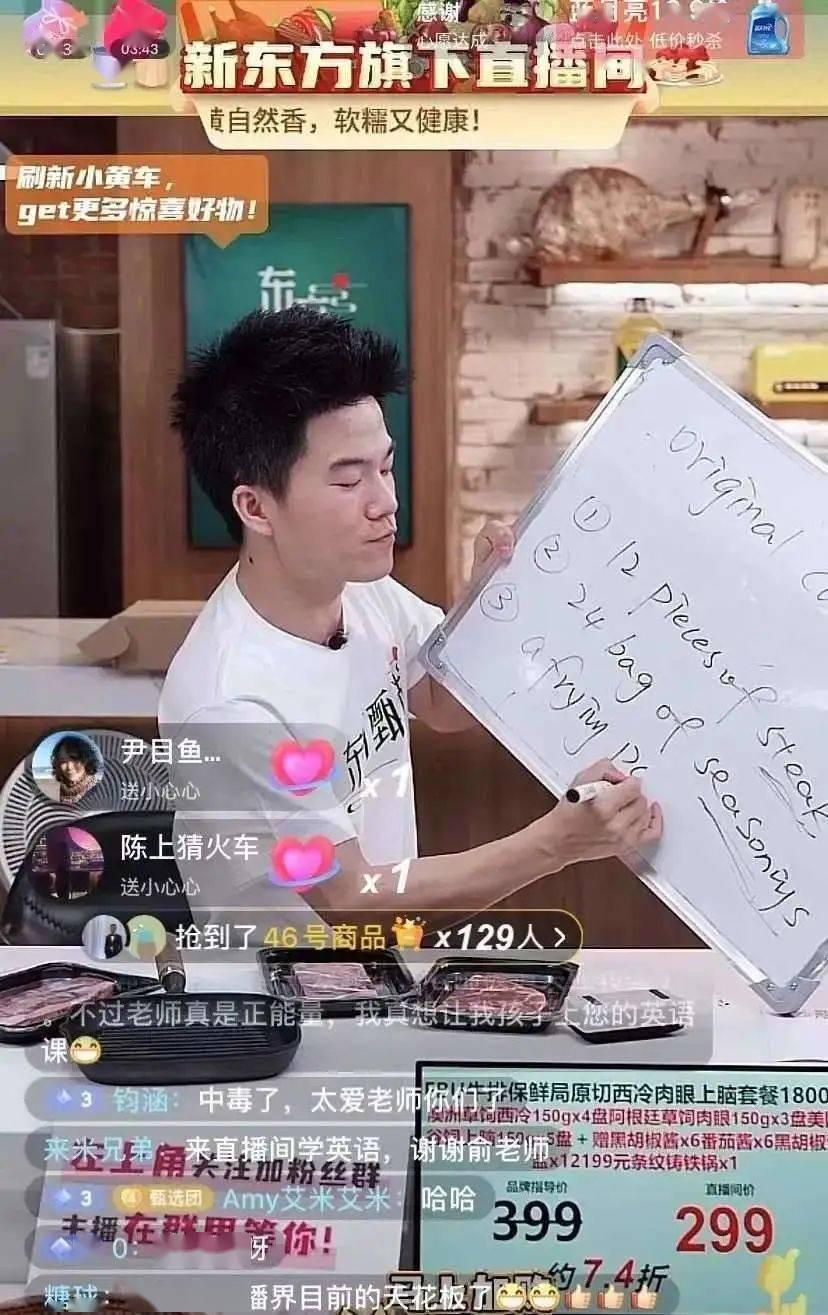 03:43
感谢
心愿达成
点击此处 低价秒杀
新东方旗下直播间
黄自然香，软糯又健康！
刷新小黄车，
get更多惊喜好物！
东
original
① 12 pieces of steak
② 24 bag of seasonings
③ a frying pa
东方甄
尹目鱼...
送小心心
x 1
陈上猜火车
送小心心
x 1
抢到了 46号商品 x129人 >
。不过老师真是正能量，我真想让我孩子上您的英语
课😁
3 钧涵：中毒了，太爱老师你们了
来米兄弟：来直播间学英语，谢谢俞老师
3 甄选团 Amy艾米艾米：哈哈
0： 牙
糖球： 播界目前的天花板了😁😁👍👍👍
左上角关注加粉丝群
主播在群里等你！
牛排保鲜局原切西冷肉眼上脑套餐1800
澳洲草饲西冷150gx4盘阿根廷草饲肉眼150gx3盘美国
谷饲上脑150gx5盘 + 赠黑胡椒酱x6番茄酱x6黑胡椒
盘x12199元条纹铸铁锅x1
品牌指导价
399
直播间价
299
约7.4折